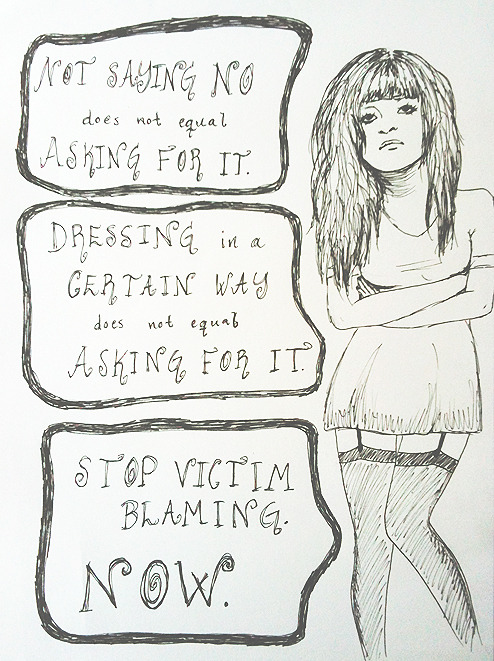 NOT SAYING NO
does not equal
ASKING FOR IT.
DRESSING in a
CERTAIN WAY
does not equal
ASKING FOR IT.
STOP VICTIM
BLAMING.
NOW.